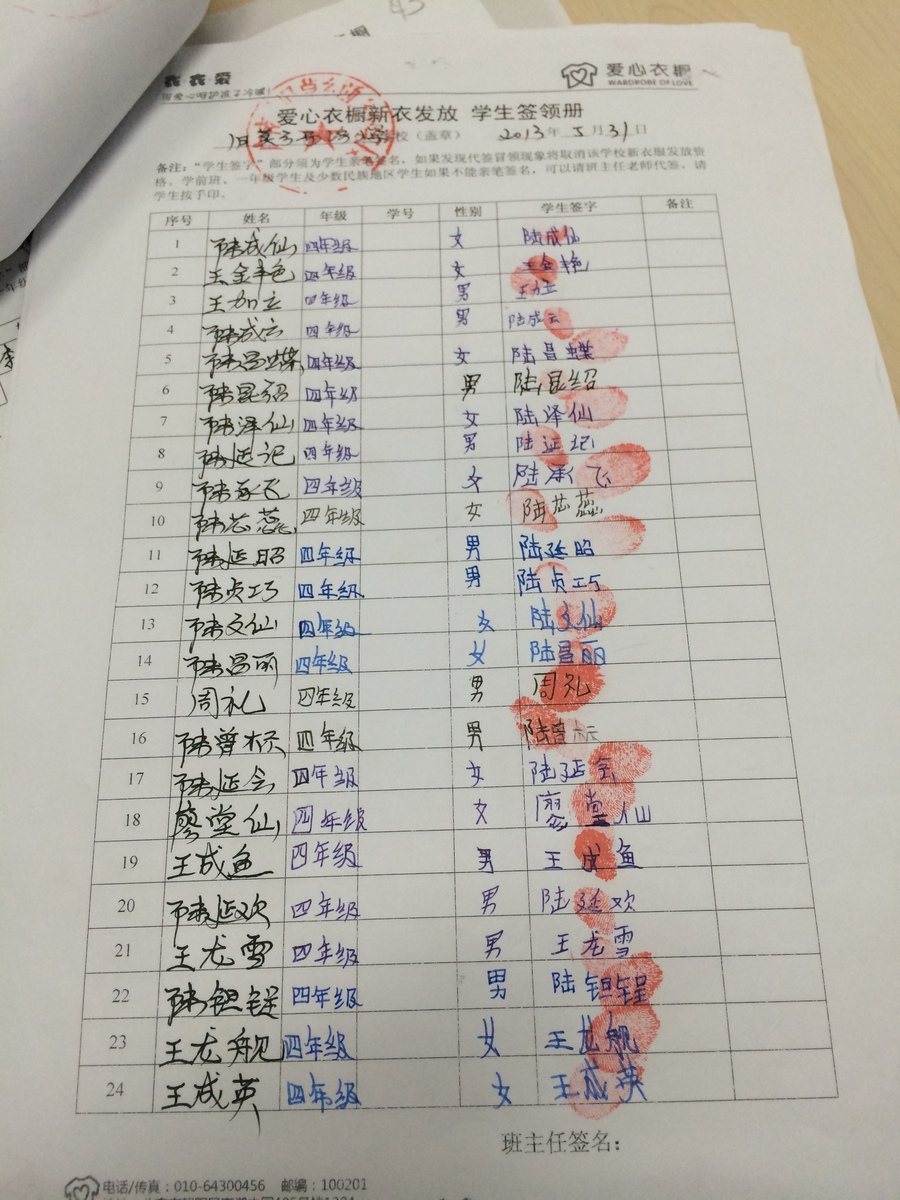 衣衣爱
爱心衣橱
WARDROBE OF LOVE
爱心衣橱新衣发放 学生签领册
学校（盖章） 2013年5月31日
备注：“学生签字”部分须为学生亲笔签名，如果发现代签冒领现象将取消该学校新衣服发放资
格。学前班、一年级学生及少数民族地区学生如果不能亲笔签名，可以请班主任老师代签，请
学生按手印。
序号 姓名 年级 学号 性别 学生签字 备注
1 陆成仙 四年级 女 陆成仙
2 王金艳 四年级 女 王金艳
3 王加立 四年级 男 王加立
4 陆成云 四年级 男 陆成云
5 陆昌蝶 四年级 女 陆昌蝶
6 陆昆绍 四年级 男 陆昆绍
7 陆泽仙 四年级 女 陆泽仙
8 陆延记 四年级 男 陆证记
9 陆承飞 四年级 女 陆承飞
10 陆芯蕊 四年级 女 陆芯蕊
11 陆延昭 四年级 男 陆延昭
12 陆贞巧 四年级 男 陆贞巧
13 陆文仙 四年级 女 陆文仙
14 陆昌丽 四年级 女 陆昌丽
15 周礼 四年级 男 周礼
16 陆曾标 四年级 男 陆曾标
17 陆延会 四年级 女 陆延会
18 廖堂仙 四年级 女 廖堂仙
19 王成鱼 四年级 男 王成鱼
20 陆延欢 四年级 男 陆延欢
21 王龙雪 四年级 男 王龙雪
22 陆钽锃 四年级 男 陆钽锃
23 王龙舰 四年级 女 王龙舰
24 王成英 四年级 女 王成英
班主任签名：
电话/传真：010-64300456 邮编：100201